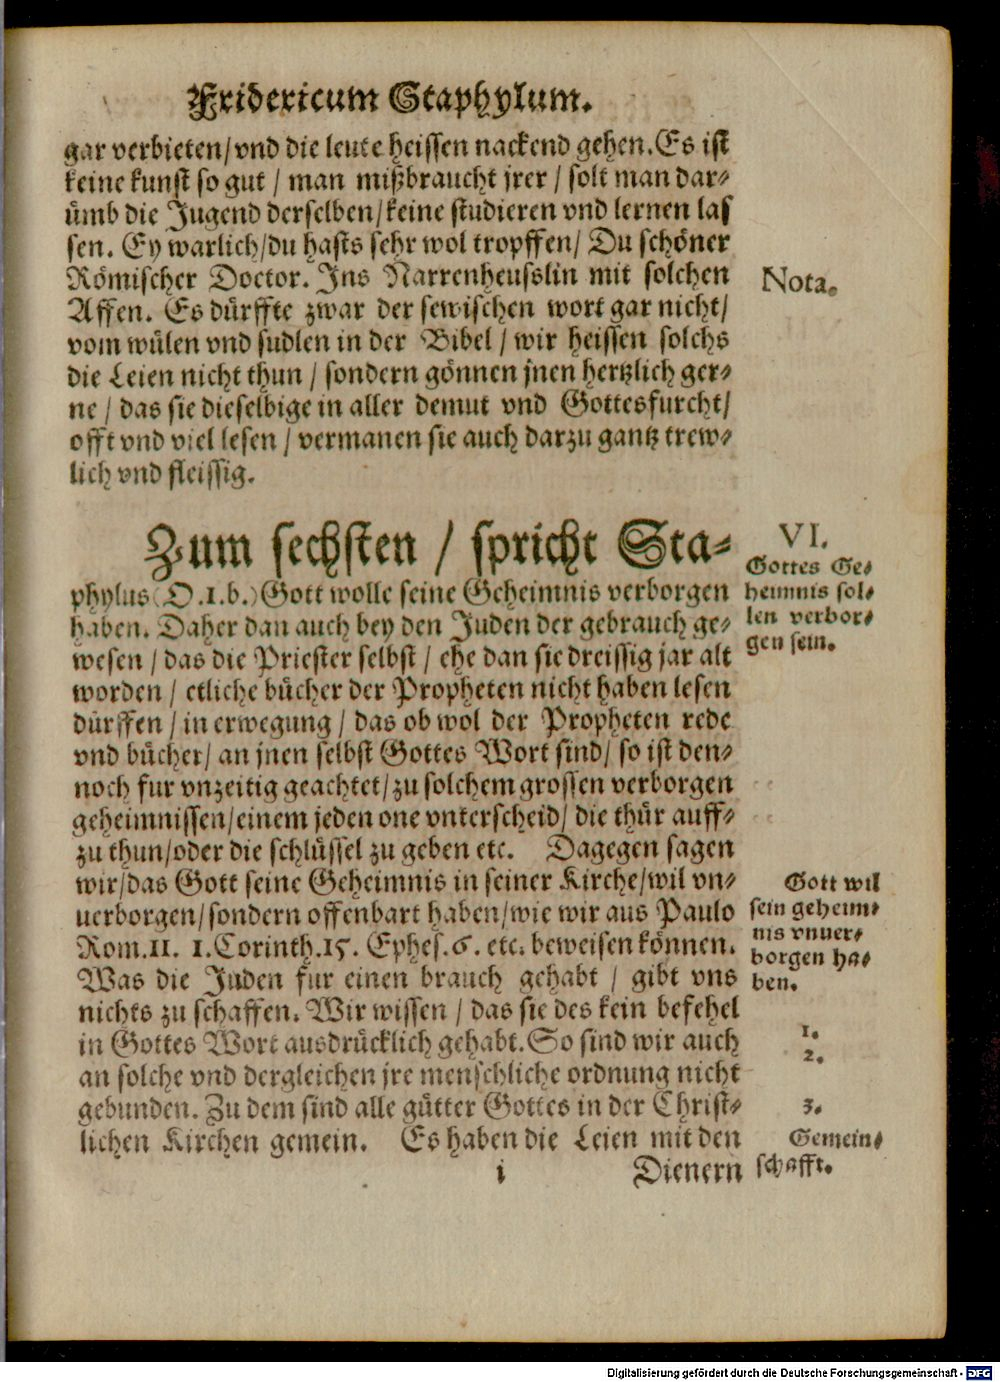 Fridericum Staphylum.
gar verbieten/vnd die leute heissen nackend gehen. Es ist
keine kunst so gut / man mißbraucht jrer / solt man dar⸗
ümb die Jugend derselben/keine studieren vnd lernen las
sen. Ey warlich/du hasts sehr wol tropffen/ Du schöner
Römischer Doctor. Ins Narrenheusslin mit solchen
Affen. Es dürffte zwar der sewischen wort gar nicht/
vom wülen vnd sudlen in der Bibel / wir heissen solchs
die Leien nicht thun / sondern gönnen jnen hertzlich ger⸗
ne / das sie dieselbige in aller demut vnd Gottesfurcht/
offt vnd viel lesen / vermanen sie auch darzu gantz trew⸗
lich vnd fleissig.
Nota.
Zum sechsten / spricht Sta⸗
phylus (D.1.b.) Gott wolle seine Geheimnis verborgen
haben. Daher dan auch bey den Juden der gebrauch ge⸗
wesen / das die Priester selbst / ehe dan sie dreissig jar alt
worden / etliche bücher der Propheten nicht haben lesen
dürffen / in erwegung / das ob wol der Propheten rede
vnd bücher/ an jnen selbst Gottes Wort sind/ so ist den⸗
noch fur vnzeitig geachtet/ zu solchem grossen verborgen
geheimnissen/einem jeden one vnterscheid/ die thür auff⸗
zu thun/oder die schlüssel zu geben etc. Dagegen sagen
wir/das Gott seine Geheimnis in seiner Kirche/wil vn⸗
uerborgen/sondern offenbart haben/wie wir aus Paulo
Rom.11. 1.Corinth.15. Ephes.6. etc. beweisen können.
Was die Juden fur einen brauch gehabt / gibt vns
nichts zu schaffen. Wir wissen / das sie des kein befehel
in Gottes Wort ausdrücklich gehabt. So sind wir auch
an solche vnd dergleichen jre menschliche ordnung nicht
gebunden. Zu dem sind alle gütter Gottes in der Christ⸗
lichen Kirchen gemein. Es haben die Leien mit den
i Dienern
VI.
Gottes Ge⸗
heimnis sol⸗
len verbor⸗
gen sein.
Gott wil
sein geheim⸗
nis vnuer⸗
borgen ha⸗
ben.
1.
2.
3.
Gemein⸗
schafft.
Digitalisierung gefördert durch die Deutsche Forschungsgemeinschaft - DFG